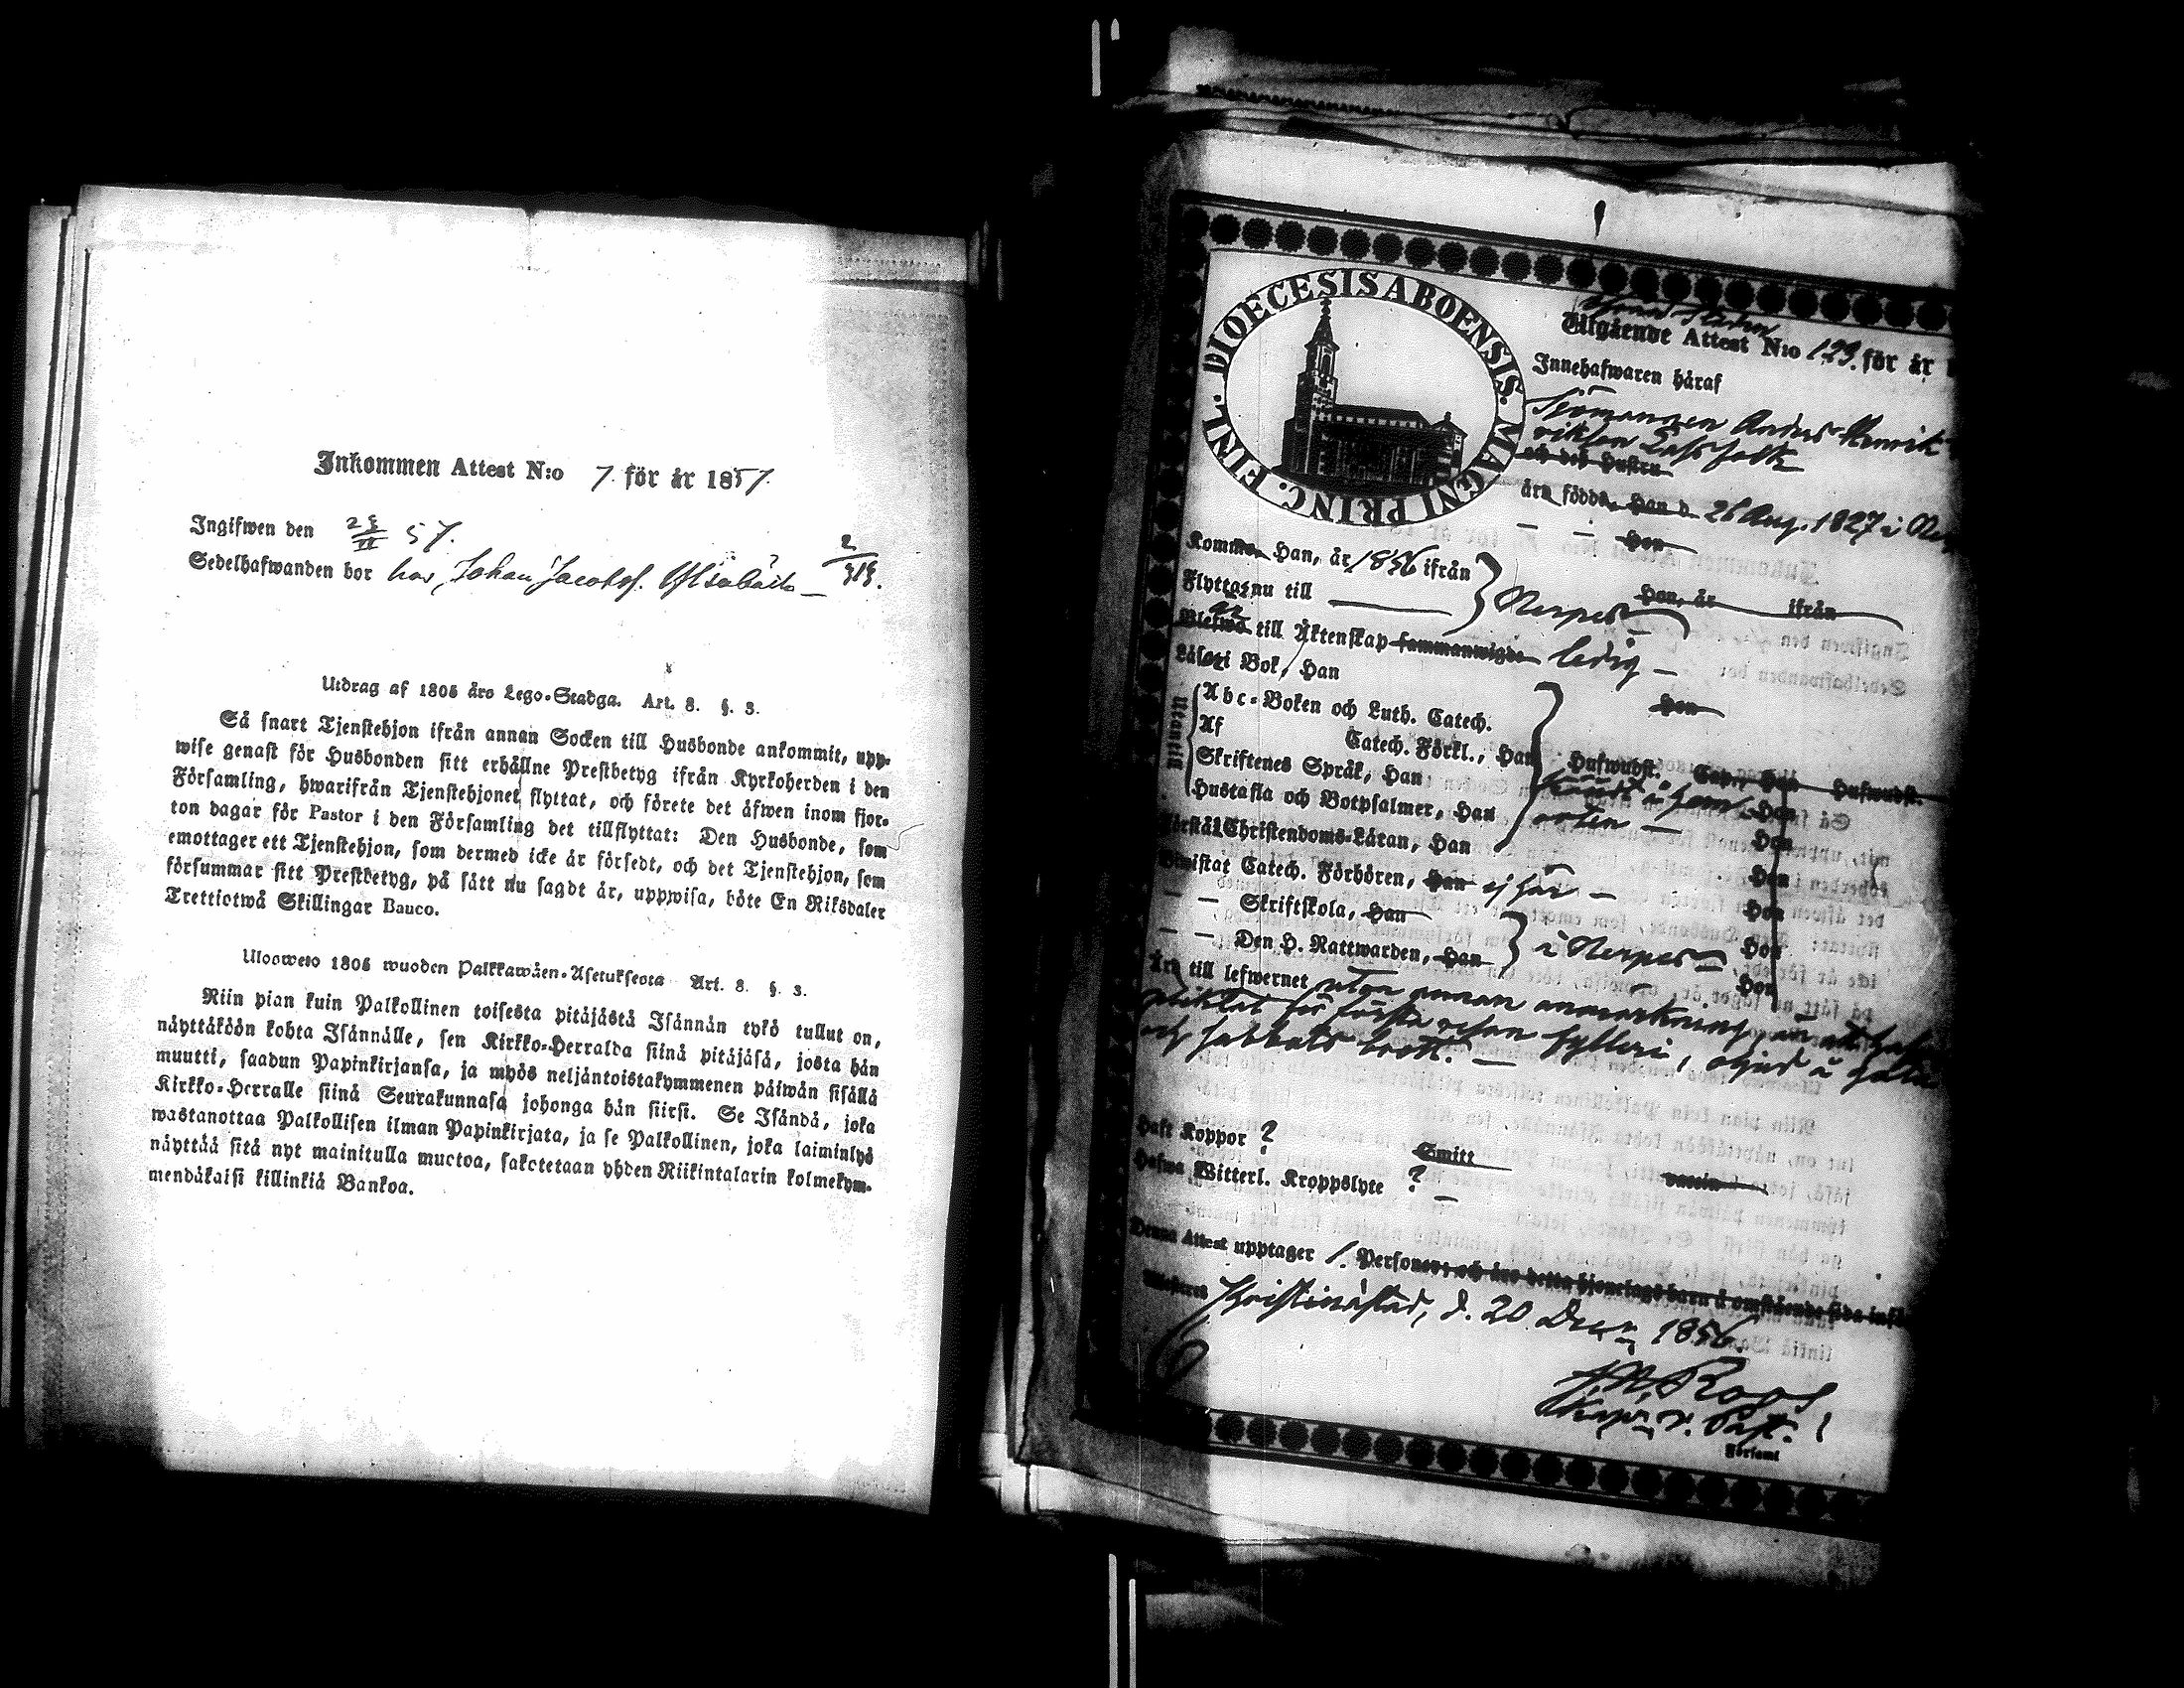 Inkommen Attest N:o 7. för år 1857.
Ingifwen den 57.
Sedelhafwanden bor hos Johan Jacobss.
Utdrag af 1805 års Lego-Stadga. Art. 8. §. 3.
Så snart Tjenstehjon ifrån annan Socken till Husbonde ankommit, upp-
wise genast för Husbonden sitt erhållne Prestbetyg ifrån Kyrkoherden i den
Församling, hwarifrån Tjenstehjonet flyttat, och förete det äfwen inom fjor-
ton dagar för Pastor i den Församling det tillflyttat: Den Husbonde, som
emottager ett Tjenstehjon, som dermed icke är försedt, och det Tjenstehjon, som
försummar sitt Prestbetyg, på sätt nu sagdt är, uppwisa, böte En Riksdaler
Trettiotwå Skillingar Banco.
Ulosweto 1805 wuoden Palkkawäen-Asetuksesta Art. 8. §. 3.
Niin pian kuin Palkollinen toisesta pitäjästä Isännän tykö tullut on,
näyttäköön kohta Isännälle, sen Kirkko-Herralda siinä pitäjäsä, josta hän
muutti, saadun Papinkirjansa, ja myös neljäntoistakymmenen päiwän sisällä
Kirkko-Herralle siinä Seurakunnasa johonga hän siirsi. Se Isändä, joka
wastanottaa Palkollisen ilman Papinkirjata, ja se Palkollinen, joka laiminlyö
näyttää sitä nyt mainitulla muotoa, sakotetaan yhden Riikintalarin kolmekym-
mendäkaisi killinkiä Bankoa.
DIOECESIS ABOENSIS. MAGNI PRINC. FINL.
Utgående Attest N:o 123. för år
Innehafwaren häraf
Sjömannen Anders Henrik
riksson Lassfolk
och des Hustru
äro födda, Han d. 26 Aug. 1827 i
Hon
Komma, Han, år 1856 ifrån
Hon, år ifrån
Flyttar nu till Nerpes
Blefwo till Äktenskap sammanwigde ledig
Läser i Bok, Han
Hon
Utantill
Abc-Boken och Luth. Catech.
Af Catech. Förkl., Han Hufwudst. Cap., Hon Hufwudst.
Skriftenes Språk, Han Hon
Hustafla och Botpsalmer, Han orten Hon
Förstår Christendoms-Läran, Han Hon
Bewistat Catech. Förhören, Han ej här Hon
Skriftskola, Han Hon
Den H. Nattwarden, Han i Nerpes Hon
Äro till lefwernet utan annan anmärkning, än att
pliktat för första resan fylleri,
och sabbats brott.
Haft Koppor ?
Smitt vaccin
Hafwa Witterl. Kroppslyte ?
Denna Attest upptager 1. Personer; och äro detta hjonelags barn å omstående sida
Attesteras Christinestad, d. 20 Dec. 1856.
Roos
Församl